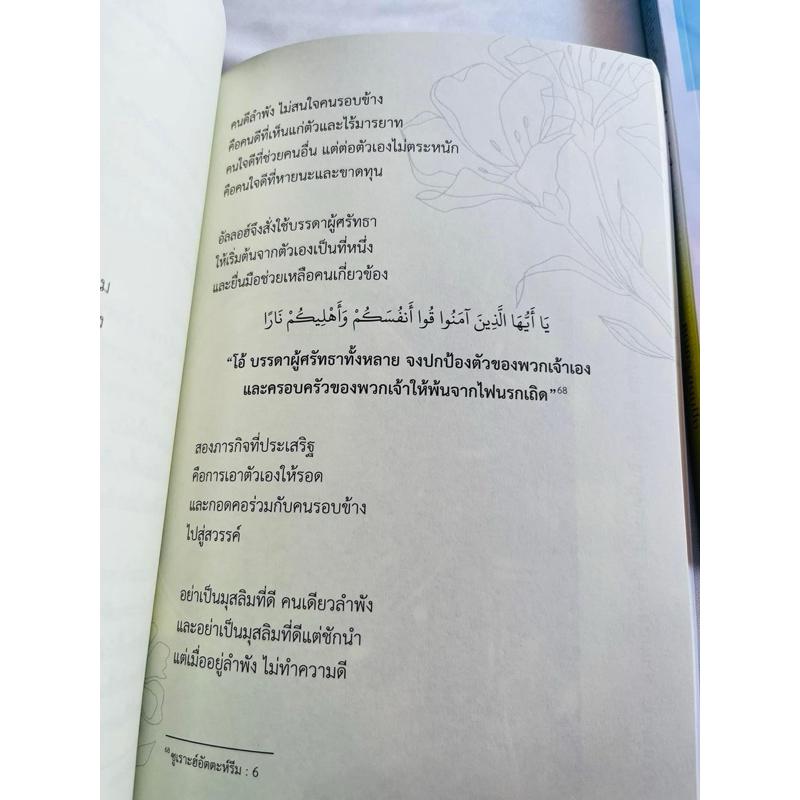 คนดีลำพัง ไม่สนใจคนรอบข้าง
คือคนดีที่เห็นแก่ตัวและไร้มารยาท
คนใจดีที่ช่วยคนอื่น แต่ต่อตัวเองไม่ตระหนัก
คือคนใจดีที่หายนะและขาดทุน
อัลลอฮ์จึงสั่งใช้บรรดาผู้ศรัทธา
ให้เริ่มต้นจากตัวเองเป็นที่หนึ่ง
และยื่นมือช่วยเหลือคนเกี่ยวข้อง
يَا أَيُّهَا الَّذِينَ آمَنُوا قُوا أَنفُسَكُمْ وَأَهْلِيكُمْ نَارًا
“โอ้ บรรดาผู้ศรัทธาทั้งหลาย จงปกป้องตัวของพวกเจ้าเอง
และครอบครัวของพวกเจ้าให้พ้นจากไฟนรกเถิด”68
สองภารกิจที่ประเสริฐ
คือการเอาตัวเองให้รอด
และกอดคอร่วมกับคนรอบข้าง
ไปสู่สวรรค์
อย่าเป็นมุสลิมที่ดี คนเดียวลำพัง
และอย่าเป็นมุสลิมที่ดีแต่ชักนำ
แต่เมื่ออยู่ลำพัง ไม่ทำความดี
68 ซูเราะฮ์อัตตะห์รีม : 6